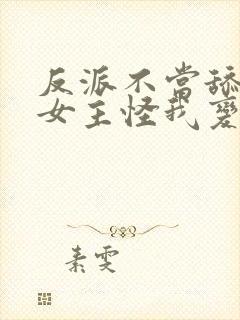 反派不当舔
女主怪我变
素雯